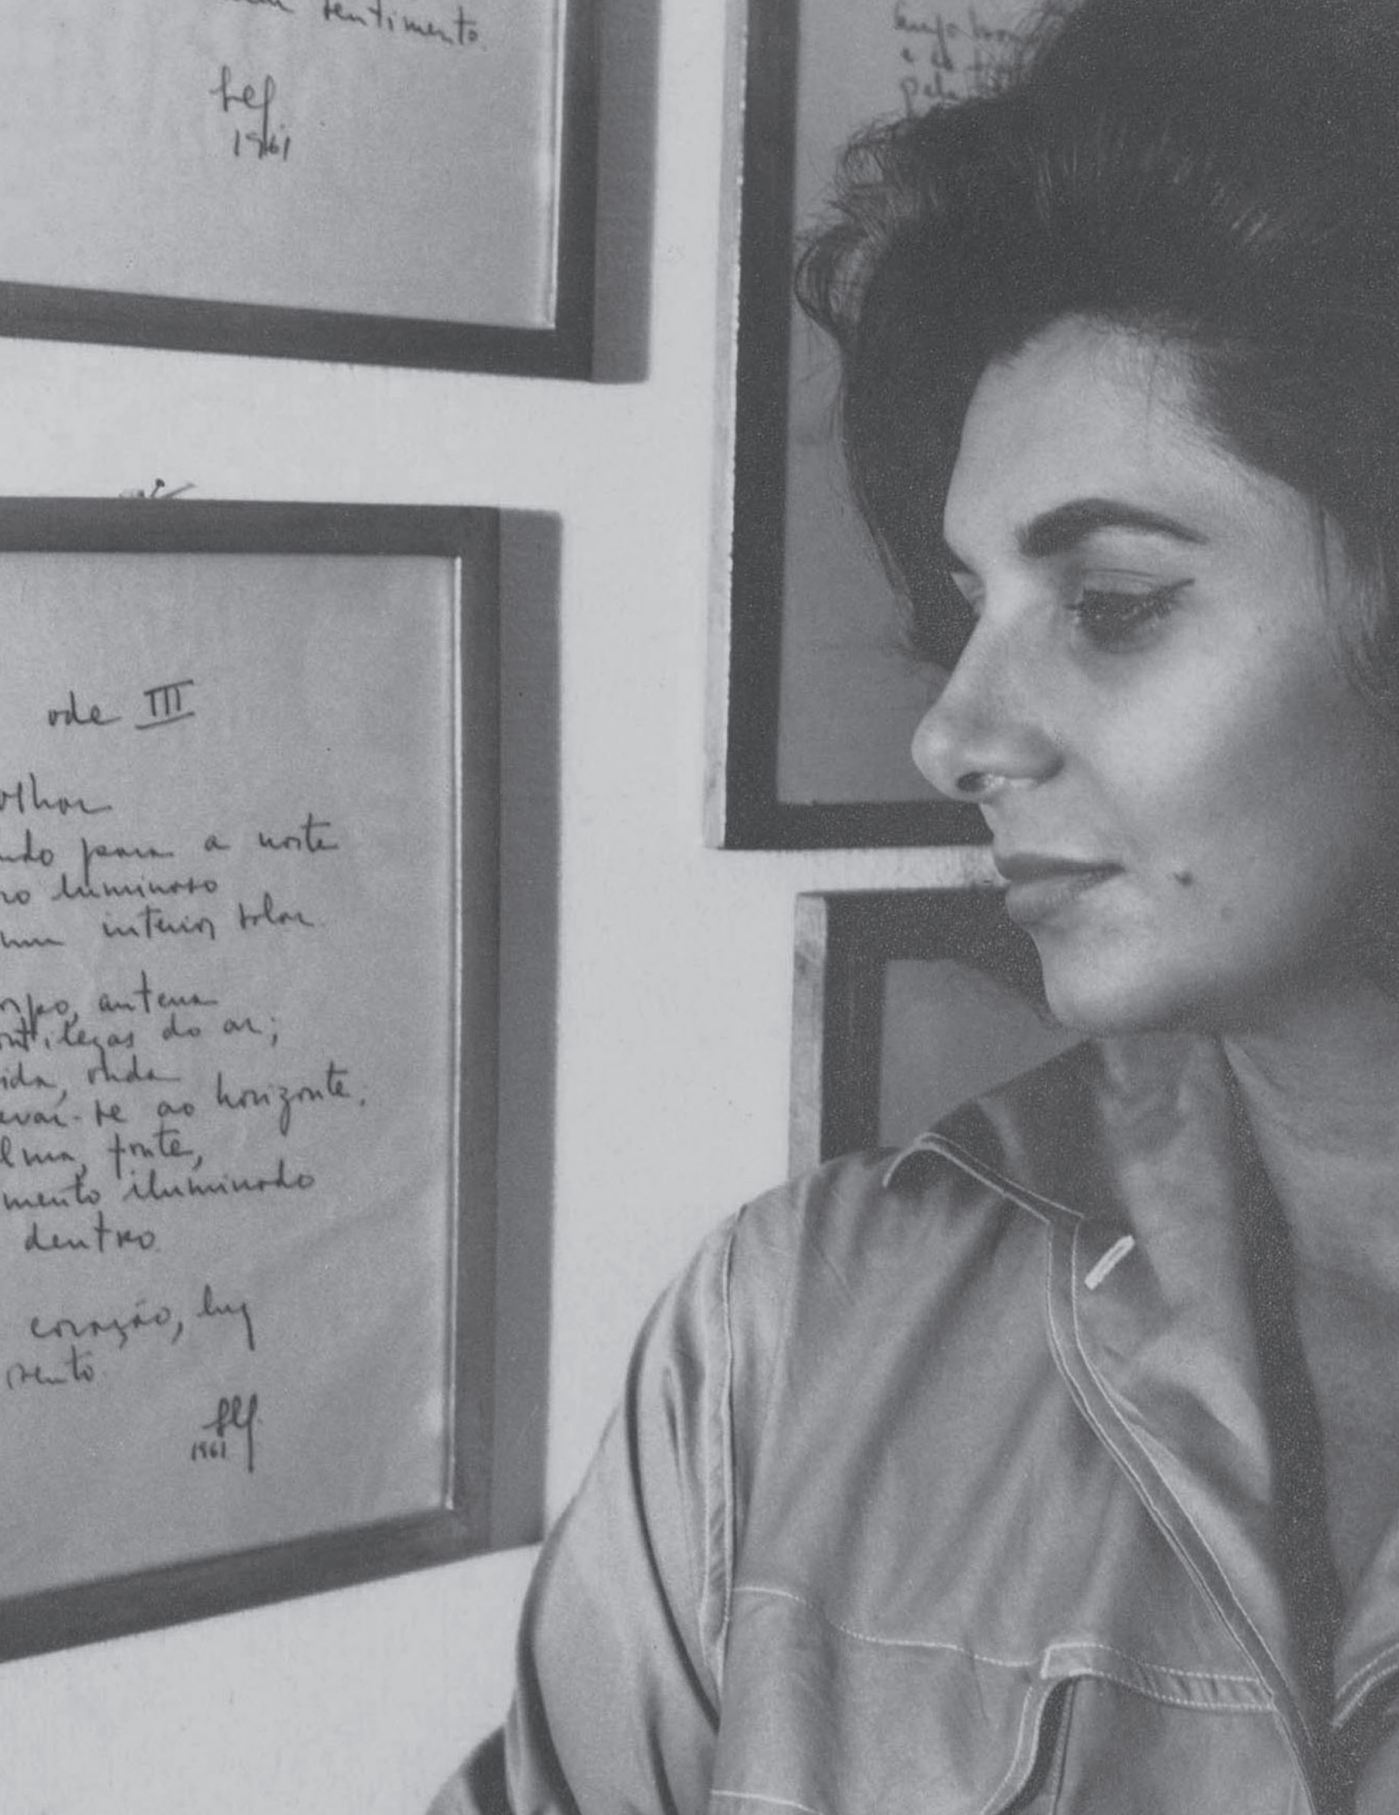 sentimento.
1961
ode III
olhar
ndo para a noite
ro luminoso
num interior solar.
orpo, antena
do ar;
ida, onda
evar-se ao horizonte.
alma, fonte,
mento iluminado
dentro.
coração, luz
1961